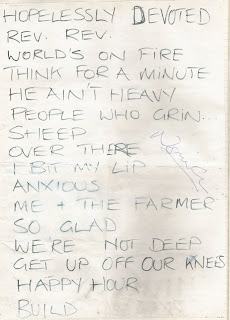 HOPELESSLY DEVOTED
REV. REV.
WORLD'S ON FIRE
THINK FOR A MINUTE
HE AIN'T HEAVY
PEOPLE WHO GRIN...
SHEEP
OVER THERE
I BIT MY LIP
ANXIOUS
ME + THE FARMER
SO GLAD
WE'RE NOT DEEP
GET UP OFF OUR KNEES
HAPPY HOUR
BUILD